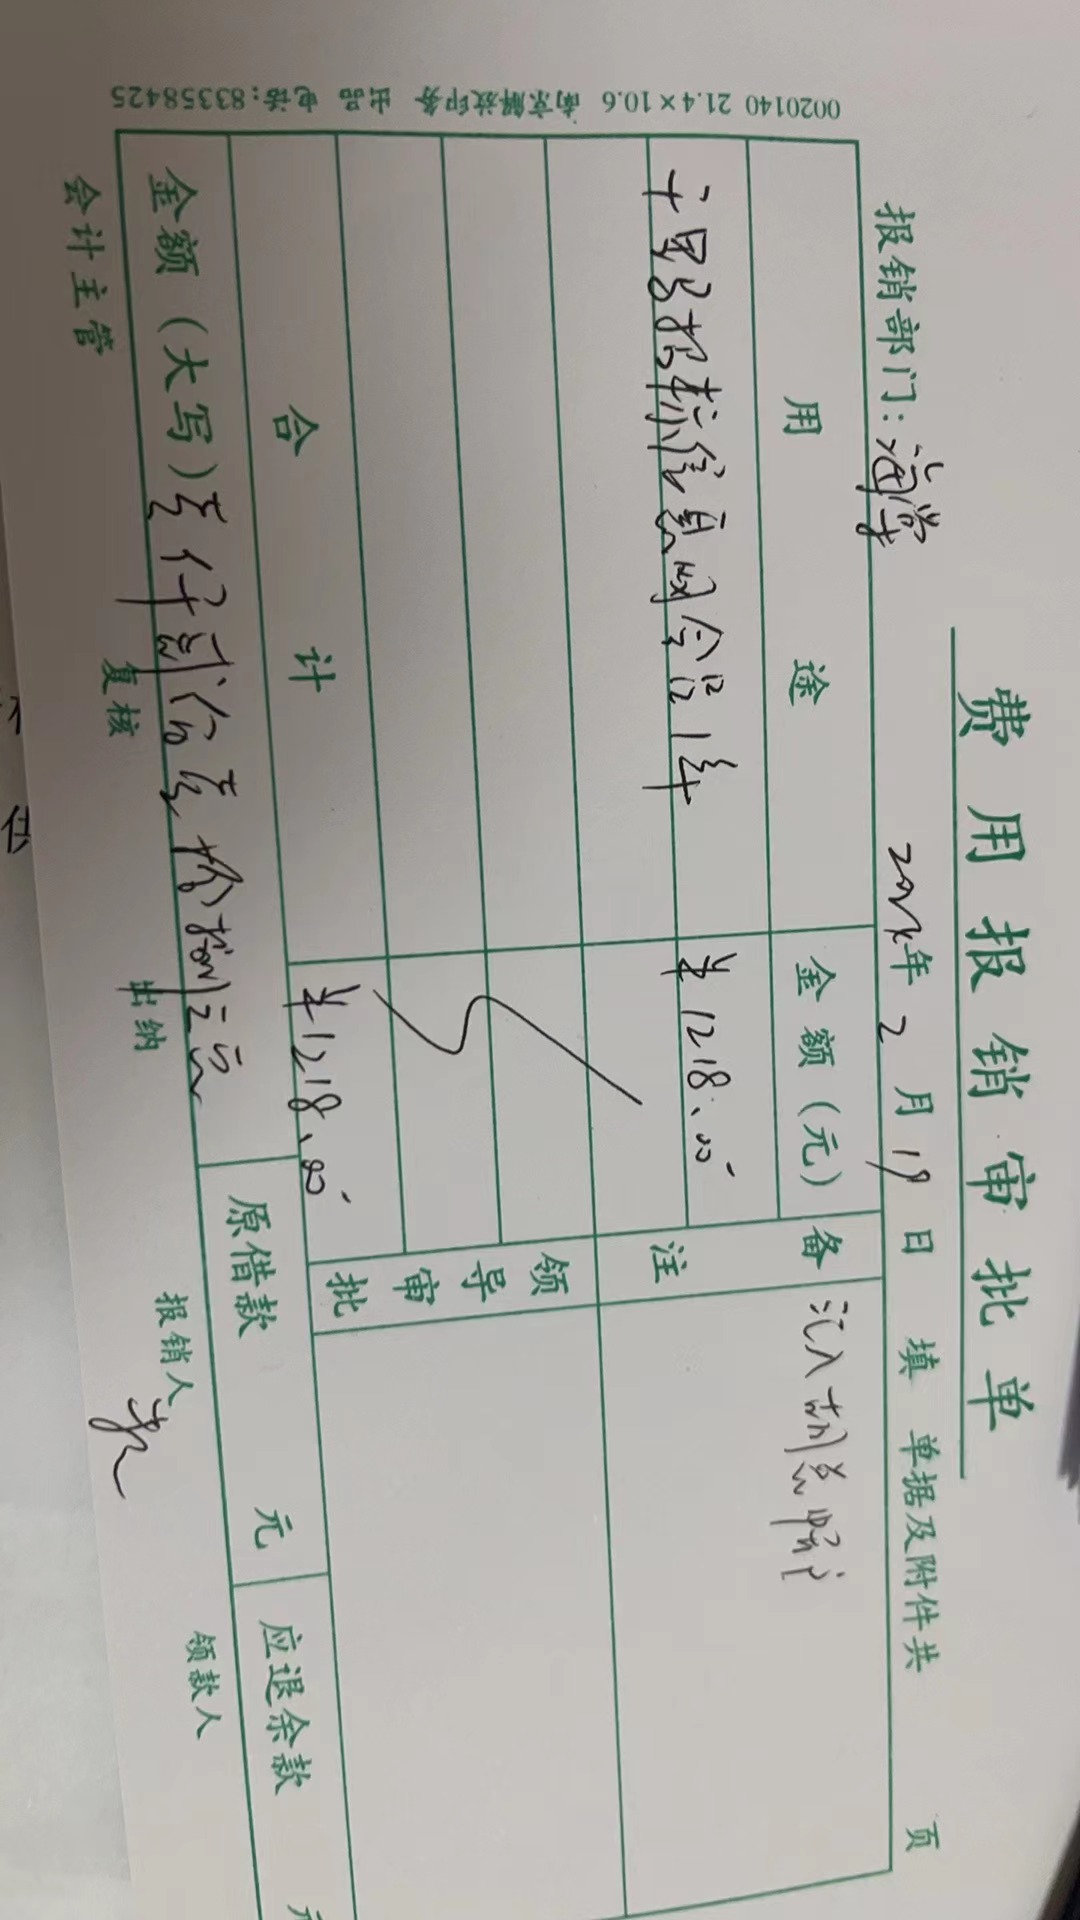 费用报销审批单
报销部门: 2024年2月19日 填 单据及附件共 页
用途 金额(元) 备注
千里马招标信息网会员1年 ¥1218.00
汇入胡总
领导审批
合计 ¥1218.00
金额(大写)壹仟贰佰壹拾捌元 原借款 元 应退余款 元
会计主管 复核 出纳 报销人 领款人
0020140 21.4×10.6 南京解放印务 出品 电话:83358425